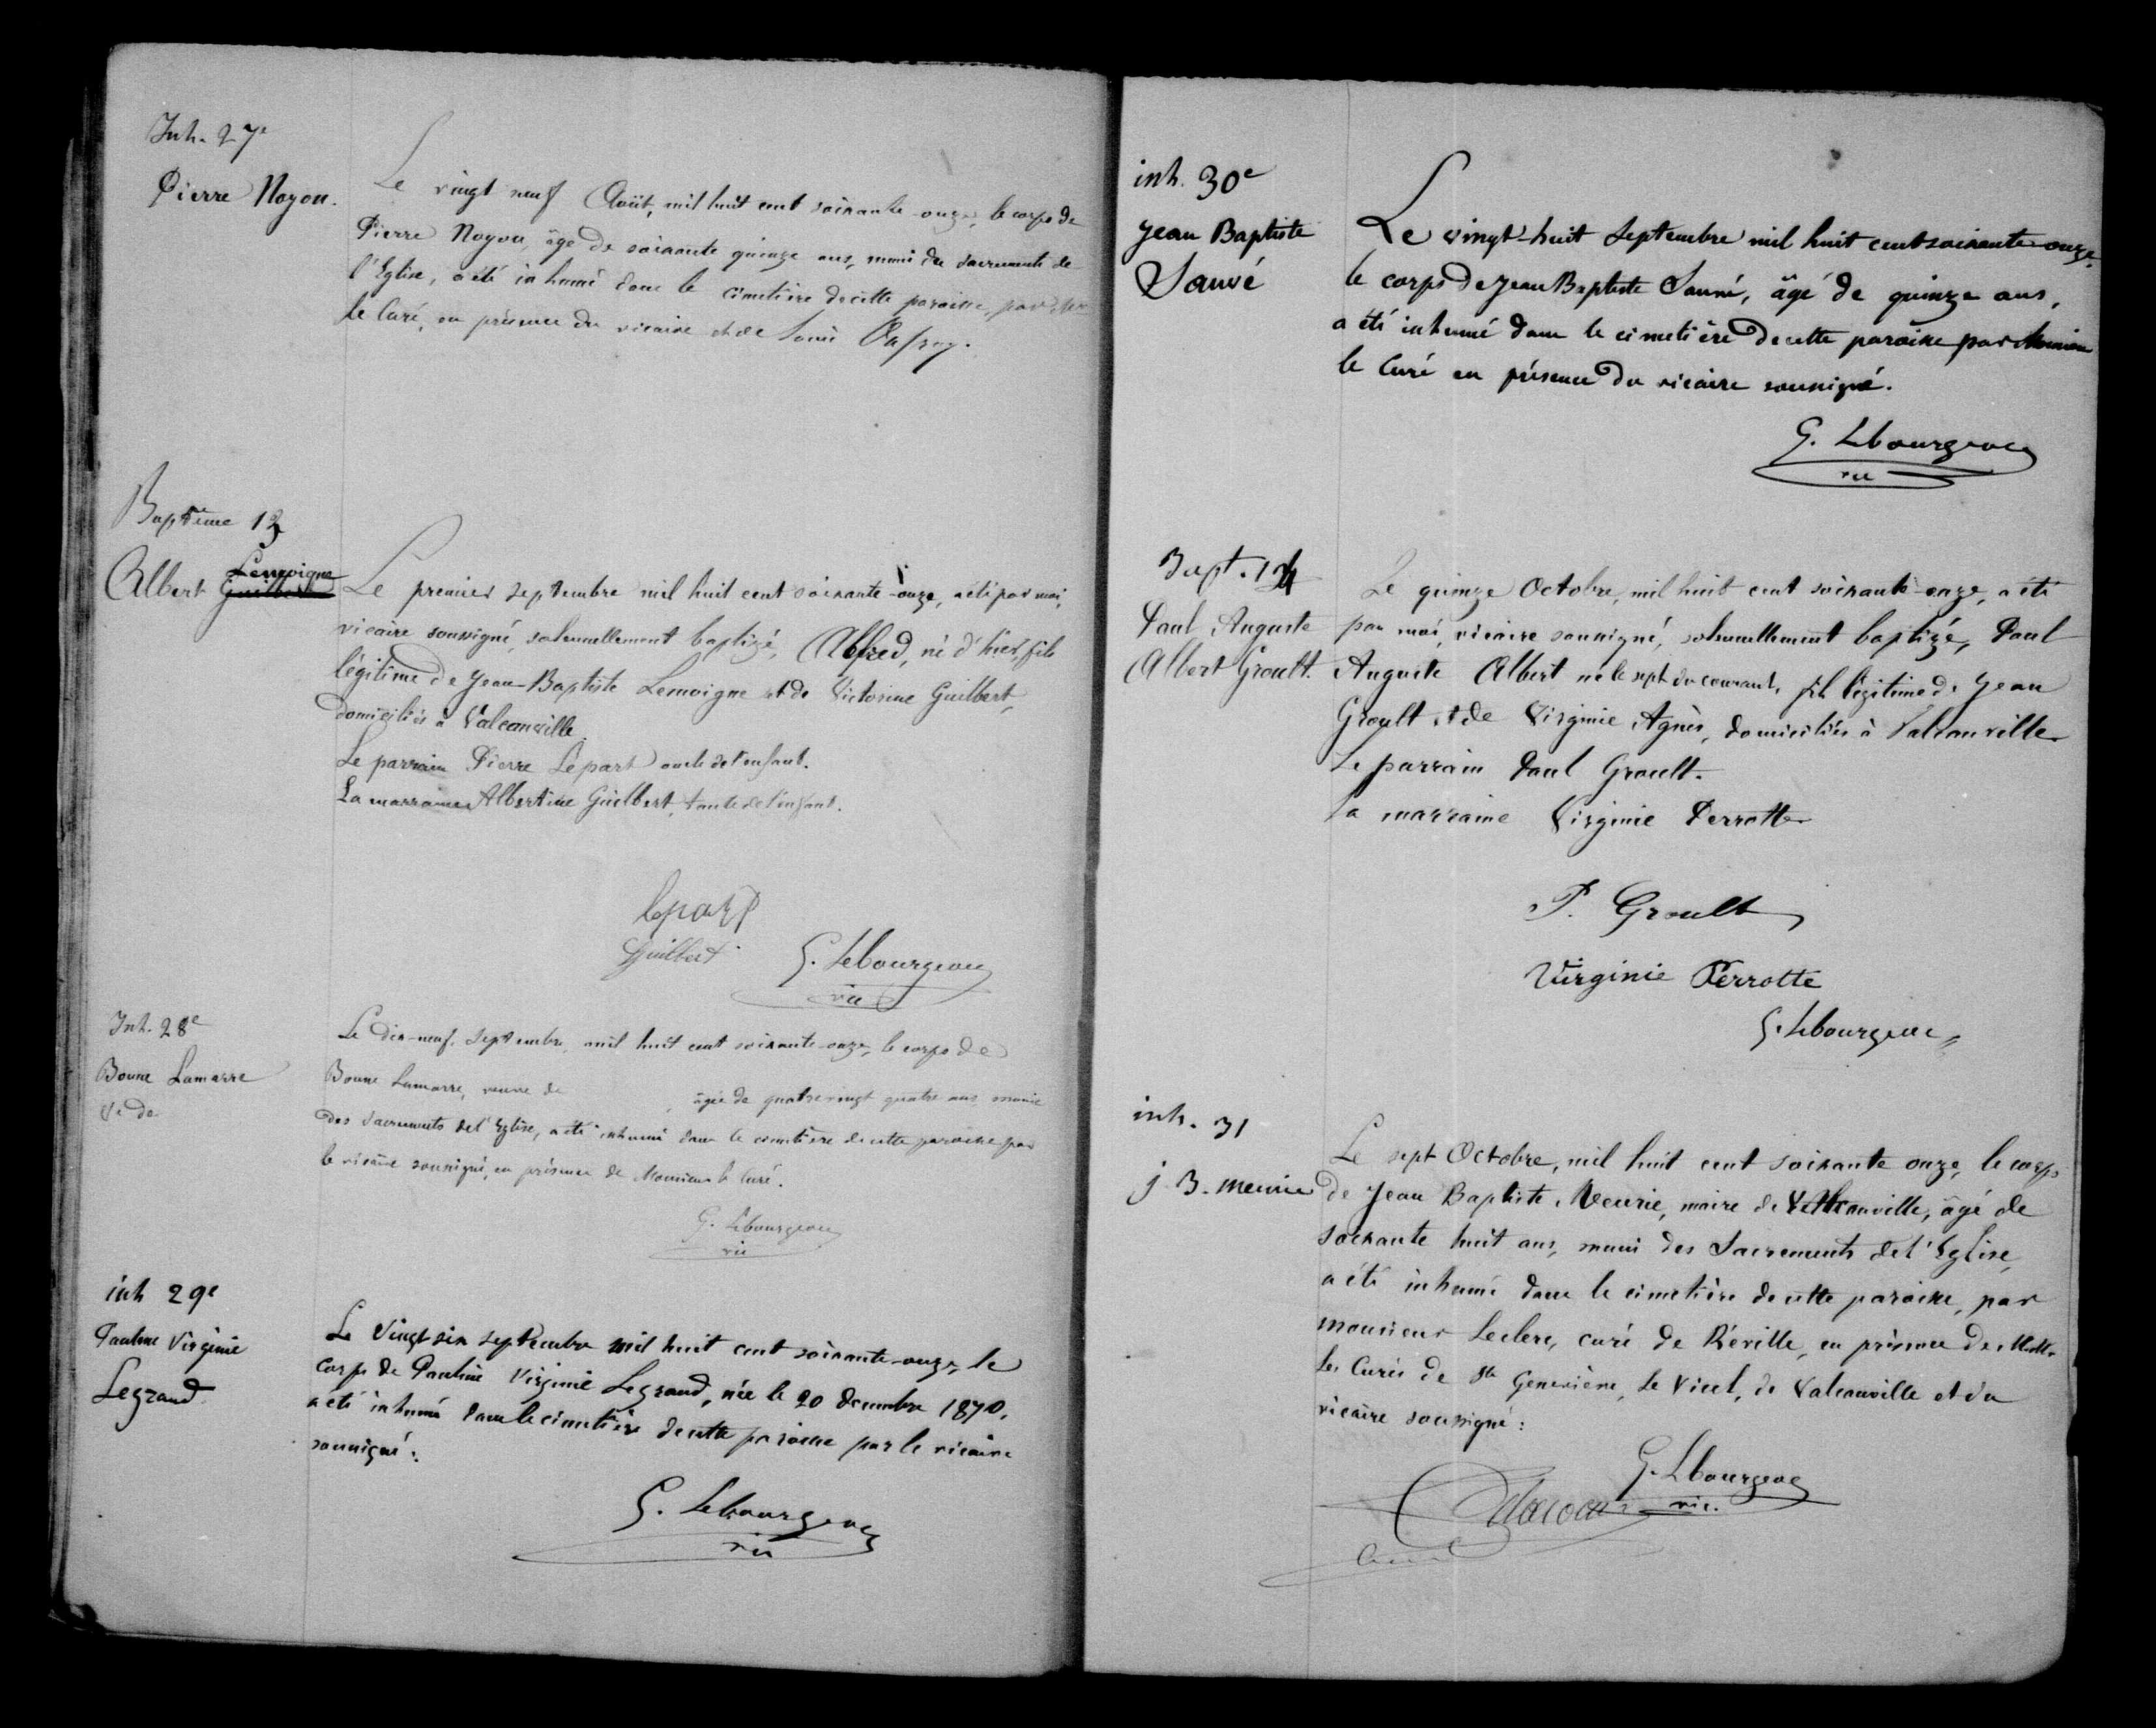 Inh. 27e
Pierre Noyon.
Le vingt neuf Août, mil huit cent soixante-onze, le corps de
Pierre Noyon, âgé de soixante quinze ans, muni des sacrements de
l'Eglise, a été inhumé dans le cimetière de cette paroisse, par
le Curé, en présence du vicaire et de Louis
Baptême 13
Albert Lemoigne
Guilbert
Le premier septembre mil huit cent soixante-onze, a été par moi,
vicaire soussigné, solennellement baptizé, Alfred, né d'hier, fils
légitime de Jean-Baptiste Lemoigne et de Victorine Guilbert,
domiciliés à Valcanville.
Le parrain Pierre Lepart oncle de l'enfant.
La marraine Albertine Guilbert, tante de l'enfant.
Lepart
Guilbert
G. Lebourgeois
vic
Inh. 28e
Bonne Lamarre
Ve de
Le dix-neuf septembre mil huit cent soixante-onze, le corps de
Bonne Lamarre, veuve de , âgée de quatre vingt quatre ans, munie
des sacrements de l'Eglise, a été inhumé dans le cimetière de cette paroisse par
le vicaire soussigné, en présence de Monsieur le Curé.
G. Lebourgeois
vic
inh 29e
Pauline Virginie
Legrand
Le Vingt six septembre mil huit cent soixante-onze, le
corps de Pauline Virginie Legrand, née le 20 décembre 1870,
a été inhumé dans le cimetière de cette paroisse par le vicaire
soussigné :
G. Lebourgeois
vic
inh. 30e
Jean Baptiste
Sauvé
Le vingt-huit Septembre mil huit cent soixante-onze,
le corps de Jean Baptiste Sauvé, âgé de quinze ans,
a été inhumé dans le cimetière de cette paroisse par Monsieur
le Curé en présence du vicaire soussigné.
G. Lebourgeois
vic
Bapt. 14
Paul Auguste
Albert Groult.
Le quinze Octobre, mil huit cent soixante-onze, a été
par moi, vicaire soussigné, solennellement baptizé, Paul
Auguste Albert né le sept du courant, fils légitime de Jean
Groult et de Virginie Agnès, domiciliés à Valcanville
Le parrain Paul Groult.
la marraine Virginie Perrotte
P. Groult
Virginie Perrotte
G. Lebourgeois
inh. 31
j B. meurie
Le sept Octobre, mil huit cent soixante onze, le corps
de Jean Baptiste Meurie, maire de Valcanville, âgé de
soixante huit ans, muni des Sacrements de l'Eglise,
a été inhumé dans le cimetière de cette paroisse, par
monsieur Leclerc, curé de Réville, en présence de MM.
les Curés de Ste Geneviève, Le Vicel, de Valcanville et du
vicaire soussigné :
G. Lebourgeois
vic.